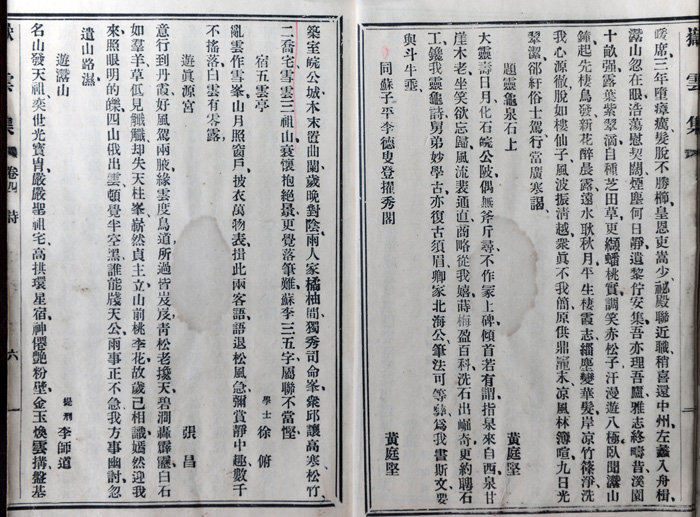 嶽雲集
暖席三年墮瘴癘髮脫不勝櫛皇恩更嵩少祕殿聯近職稍喜還中州左蠡入舟楫
灊山忽在眼浩蕩慰契闊煙塵何日靜遺黎佇安集吾亦理吾廬雅志終疇昔溪園
十畝强露葉紫翠滴自種芝田草更纈蟠桃實調笑赤松子汗漫遊八極臥聞灊山
鐘起先棲鳥發新花醉晨露遠水耿秋月平生棲霞志緇塵變華髮岸凉竹簌淨洗
我心源徹脫如樓仙子風波振清越衆眞不我簡原供鼎末凉風林簿暄九日光
翠潔邵紆俗士駕行當廣寒謁
題靈龜泉石上 黃庭堅
大靈壽日月化石皖公陂偶無斧斤尋不作冢上碑傾首若有謂指泉來自西泉甘
崖木老坐笑欲忘歸風流裴通直商略從我嬉蒔梅盈百科洗石出崛奇更約聘石
工鑱我靈龜詩舅弟妙學古亦復古須眉卿家北海公筆法可等彝爲我書斯文要
與斗牛垂
同蘇子平李德叟登擢秀閣 黃庭堅
築室皖公城木末置曲闌歲晚對陰雨人家橘柚間獨秀司命峯衆邱讓高寒松竹
二喬宅雪雲三祖山衰懷抱絕景更覺落筆難蘇李三五字屬聯不當慳
宿五雲亭 學士 徐俯
亂雲作雪峯山月照窗戶披衣萬物表揖此兩客語語退松風急彌賞靜中趣數千
不搖落白雲有零露
遊眞源宮 張昌
意行到丹霞好風駕兩腋緣雲度鳥道所過皆岌岌靑松老攙天碧澗轟霹靂白石
如羣羊草低見觺觺却失天柱峯嶄然貞主立山前桃李花故歲已相識嫣然迎我
來照眼明的皪四山俄出雲頓覺半空濕誰能牋天公雨事正不急我方事幽討忽
遣山路濕
遊灊山 提刑 李師道
名山發天祖奕世光寶冑嚴嚴聖祖宅高拱環星宿神僊艷粉壁金玉煥雲搆盤基
嶽雲集 卷四 詩 六